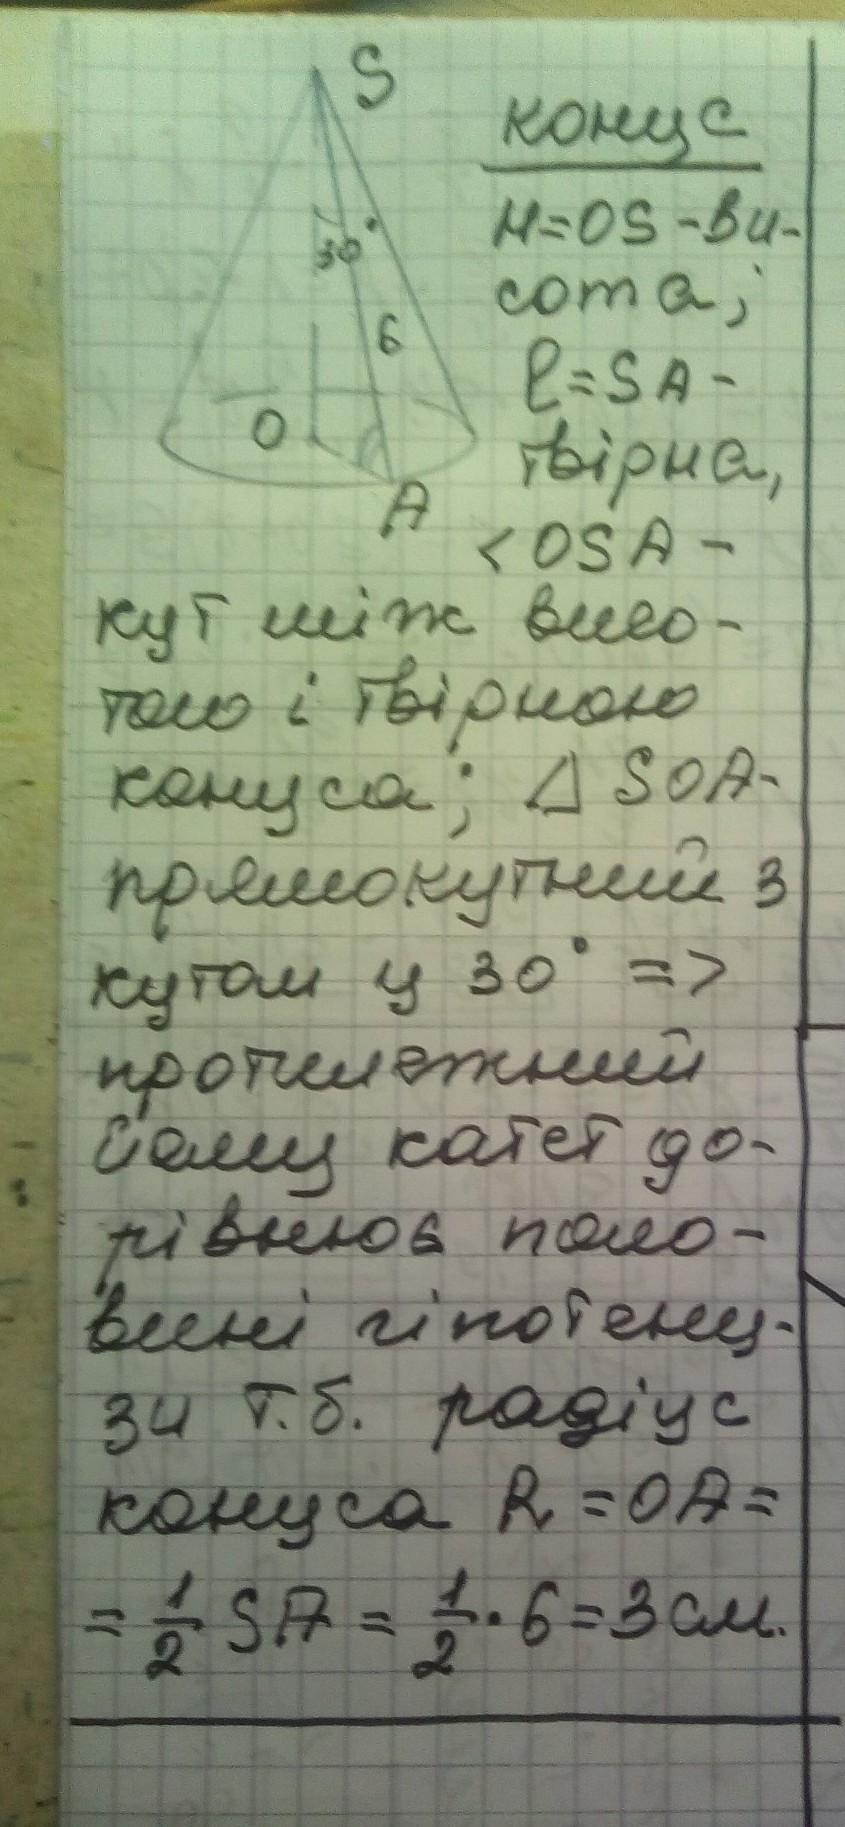 S
конус
H=OS-ви-
30°
сота;
6
l=SA-
О
твірна,
A
<OSA-
кут між висо-
тою і твірною
конуса; △ SOA-
прямокутний з
кутом у 30° =>
протилежний
йому катет до-
рівнює поло-
вині гіпотену-
зи т.б. радіус
конуса R=OA=
= 1/2 SA = 1/2 · 6 = 3 см.